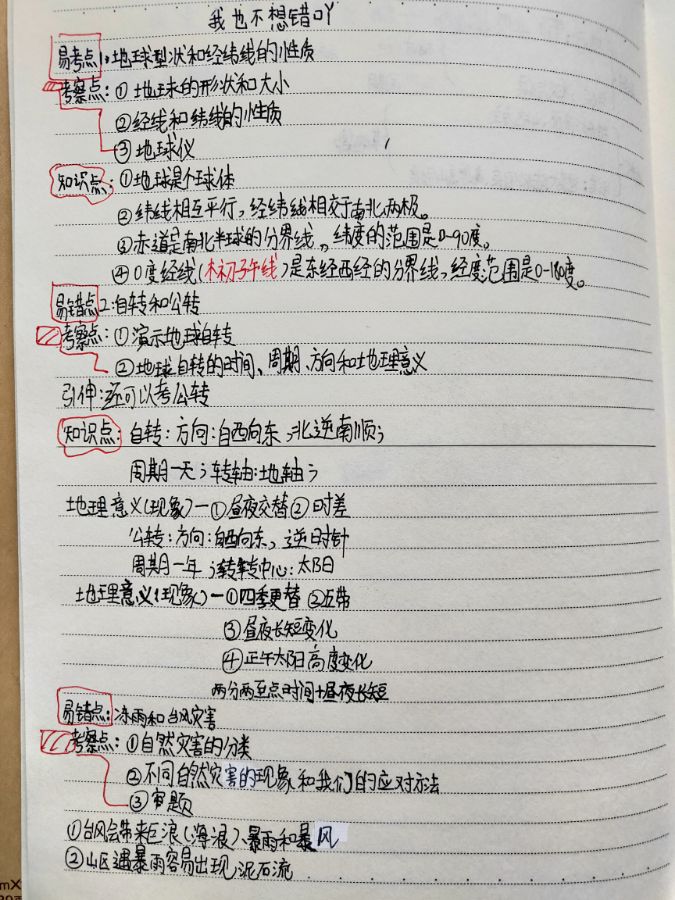 我也不想错吖
易考点1:地球型状和经纬线的性质
考察点:①地球的形状和大小
②经线和纬线的性质
③地球仪
知识点:①地球是个球体
②纬线相互平行,经纬线相交于南北两极。
③赤道是南北半球的分界线,纬度的范围是0-90度。
④0度经线(本初子午线)是东经西经的分界线,经度范围是0-180度。
易错点2:自转和公转
考察点:①演示地球自转
②地球自转的时间、周期、方向和地理意义
引伸:还可以考公转
知识点:自转:方向:自西向东,北逆南顺;
周期一天;转轴:地轴;
地理意义(现象)一①昼夜交替②时差
公转:方向:自西向东,逆时针
周期一年;转中心:太阳
地理意义(现象)一①四季更替②五带
③昼夜长短变化
④正午太阳高度变化
两分两至点时间+昼夜长短
易错点:冻雨和台风灾害
考察点:①自然灾害的分类
②不同自然灾害的现象和我们的应对方法
③审题
①台风会带来巨浪(海浪)、暴雨和暴风
②山区遇暴雨容易出现泥石流
mX